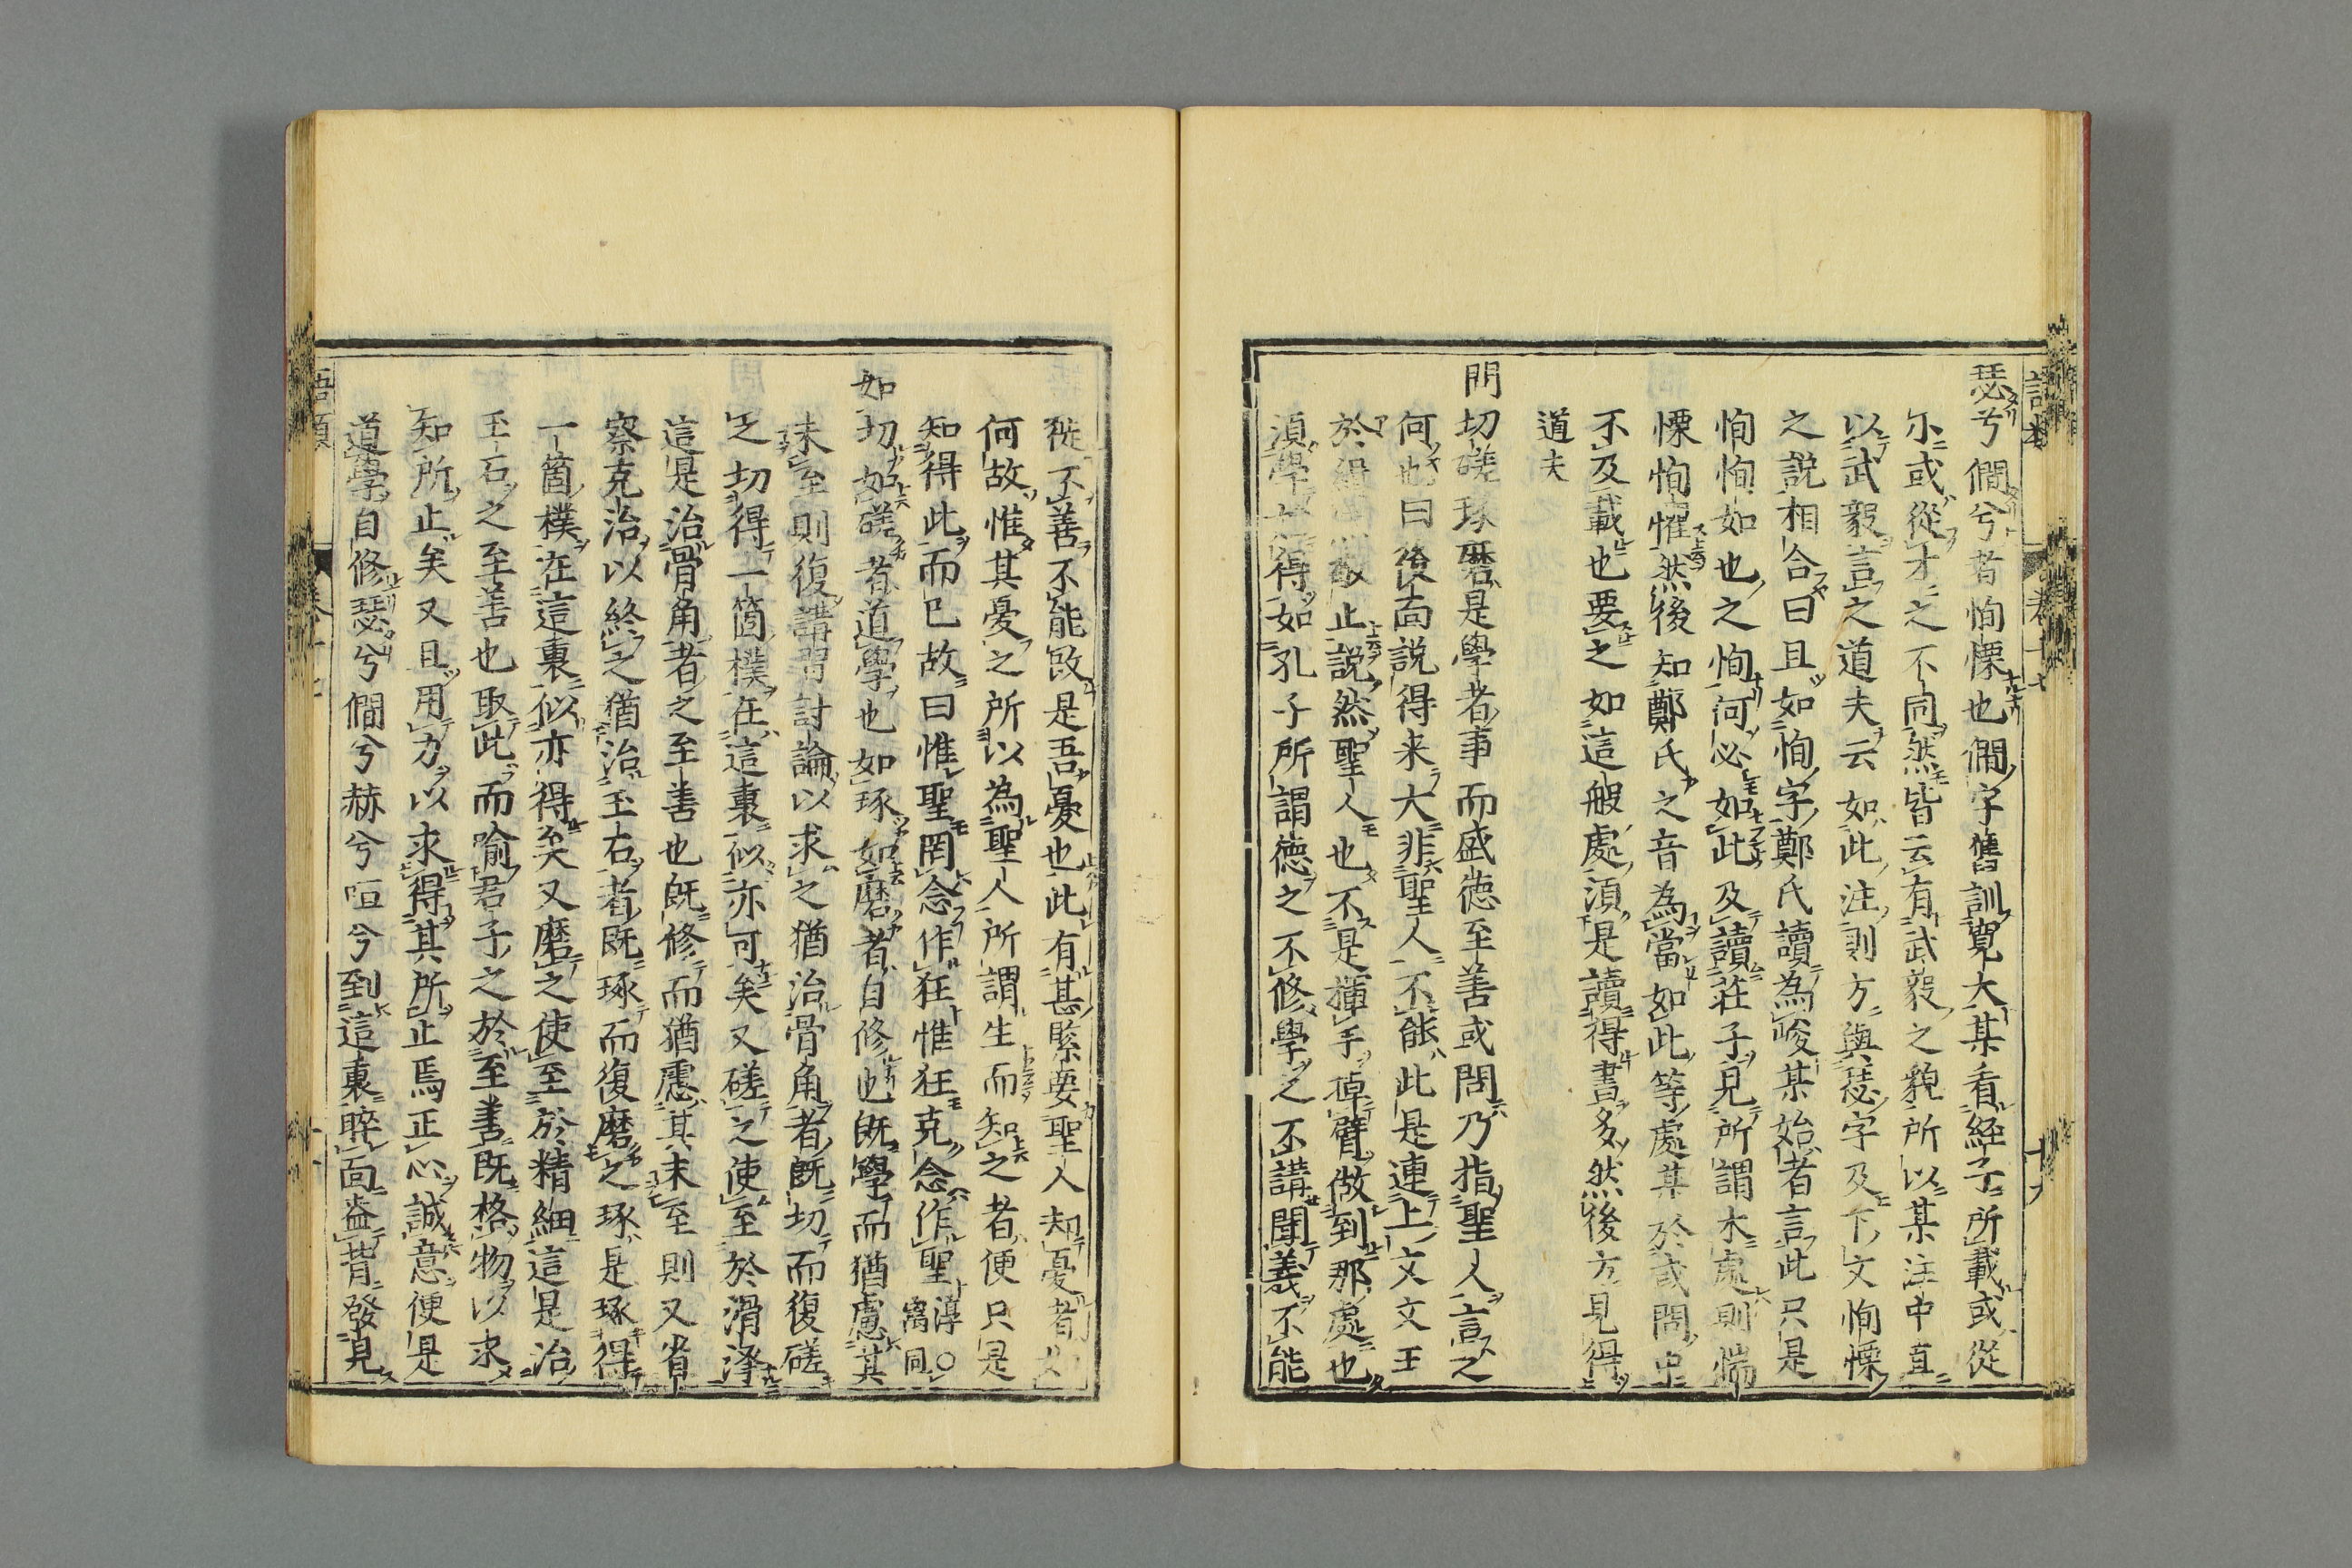 瑟兮僩兮者恂慄也僩字舊訓寬大某看經子所載或從
尓或從才之不同然皆云有武毅之貌所以某注中直
以武毅言之道夫云如此注則方與瑟字及下文恂慄
之說相合曰且如恂字鄭氏讀為峻某始者言此只是
恂恂如也之恂何必如此及讀莊子見所謂木處則惴
慄恂懼然後知鄭氏之音為當如此等處某於或問中
不及載也要之如這般處須是讀得書多然後方見得
道夫
問切磋琢磨是學者事而盛德至善或問乃指聖人言之
何也曰後面說得来大非聖人不能此是連上文文王
於緝熙敬止說然聖人也不是揮手掉臂做到那處也
須學始得如孔子所謂德之不修學之不講聞義不能
徙不善不能改是吾憂也此有甚緊要聖人却憂者
何故惟其憂之所以為聖人所謂生而知之者便只是
知得此而已故曰惟聖罔念作狂惟狂克念作聖淳○寓同
如切如磋者道學也如琢如磨者自修也既學而猶慮其
未至則復講習討論以求之猶治骨角者既切而復磋
之切得一箇樸在這裏似亦可矣又磋之使至於滑澤
這是治骨角者之至善也既修而猶慮其未至則又省
察克治以終之猶治玉石者既琢而復磨之琢是琢得
一箇樸在這裏似亦得矣又磨之使至於精細這是治
玉石之至善也取此而喻君子之於至善既格物以求
知所止矣又且用力以求得其所止焉正心誠意便是
道學自修瑟兮僩兮赫兮咺兮到這裏睟面盎背發見